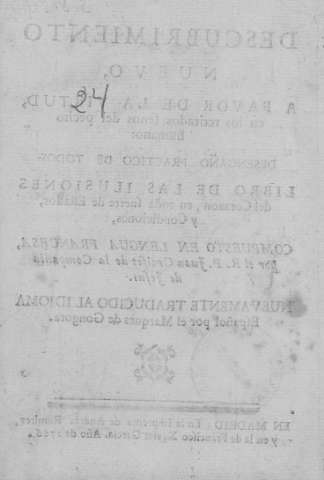 DESCUBRIMIENTO
NUEVO,
24
A FAVOR DE LA VIRTUD,
en los retirados senos del pecho
humano:
DESENGAÑO PRACTICO DE TODOS
LIBRO DE LAS ILUSIONES
del Corazon, en toda suerte de Estados,
y Condiciones,
COMPUESTO EN LENGUA FRANCESA,
Por el R. P. Juan de la Compañia
de Jesus.
NUEVAMENTE TRADUCIDO AL IDIOMA
Español por el Marques de Gongora.
EN MADRID: En la Imprenta de Andrés Ramirez,
y en la de Francisco Xavier Garcia. Año de